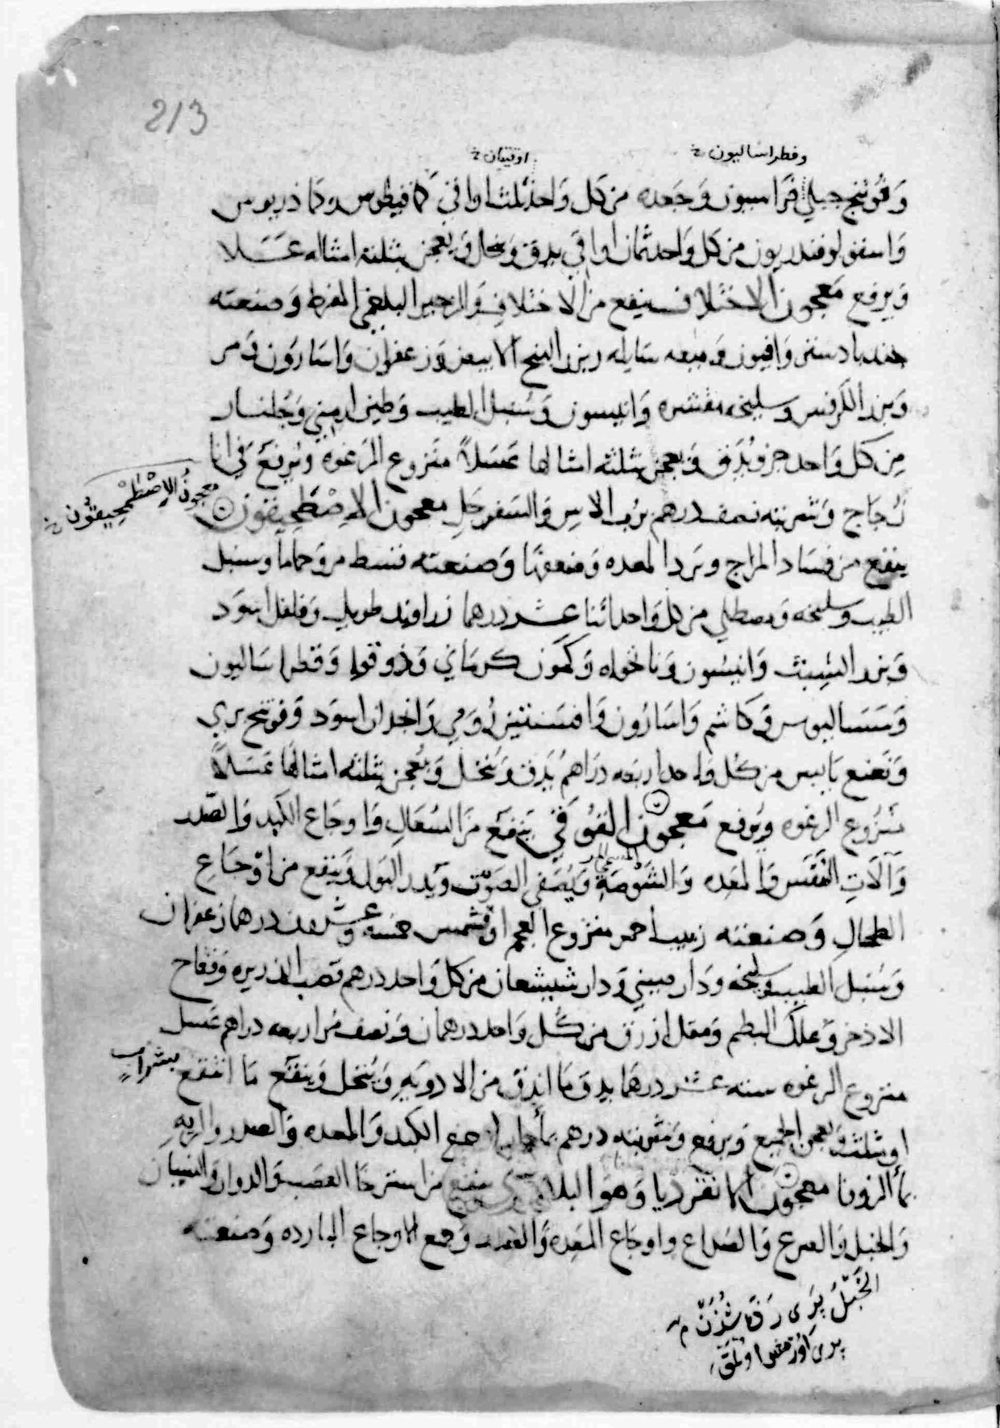 213
وفطراساليون خ
اوقيتان خ
وفوتنج جبلي فراسيون وجعده من كل واحد ثلث اواقي كمافيطوس وكماذريوس
واسقولوقندريون من كل واحد ثمان اواقي يدق وينخل ويعجن بثلثه امثاله عسلا
ويرفع معجون الاختلاف ينفع من الاختلاف والزحير البلغمي المفرط وصنعته
جندبادستر وافيون وميعه سايله وبزر البنج الابيض وزعفران واسارون ومر
وبزر الكرفس وسليخه مقشره وانيسون وسنبل الطيب وطين ارمني وجلنار
من كل واحد جزو يدق ويعجن بثلثه امثالها عسلاً منزوع الرغوه ويرفع في انا
زجاج وشربته نصف درهم برب الاس والسفرجل معجون الاصطمحيقون
معجون الاصطمحيقون خ
ينفع من فساد المزاج وبرد المعده وضعفها وصنعته قسط مر وحماما وسنبل
الطيب وسليخه ومصطكي من كل واحد اثنا عشر درهما زراوند طويل وفلفل اسود
وبزر الشبث وانيسون ونانخواه وكمون كرماني وذوقوا وفطراساليون
وسساليوس وكاشم واسارون وافسنتين رومي واخدان اسود وفوتنج بري
ونعنع يابس من كل واحد اربعه دراهم يدق وينخل ويعجن بثلثه امثالها عسلاً
منزوع الرغوه ويرفع معجون القوقي ينفع من السعال واوجاع الكبد والصدر
وآلات النفس والمعده والشوصة ويصفي الصوت ويدر البول وينفع من اوجاع
الطحال وصنعته زبيب احمر منزوع العجم اوقشمس خمسه وعشرون درهما زعفران
وسنبل الطيب وسليخه ودارصيني ودارشيشعان من كل واحد درهم قصب الذريره وفقاح
الاذخر وعلك البطم ومقل ازرق من كل واحد درهمان ونصف مر اربعه دراهم عسل
منزوع الرغوه سته عشر درهما يدق ما اندق من الادويه وينخل وينقع ما انتقع بشراب
اومثلث ويعجن الجميع ويرفع وشربته درهم الكبد والمعده والصدر والريه
بما الزوفا معجون الانقرديا وهو البلادري ينفع من استرخا العصب والدوار والنسيان
والخبل والصرع والصداع واوجاع المعده وجميع الاوجاع البارده وصنعته
الخبل